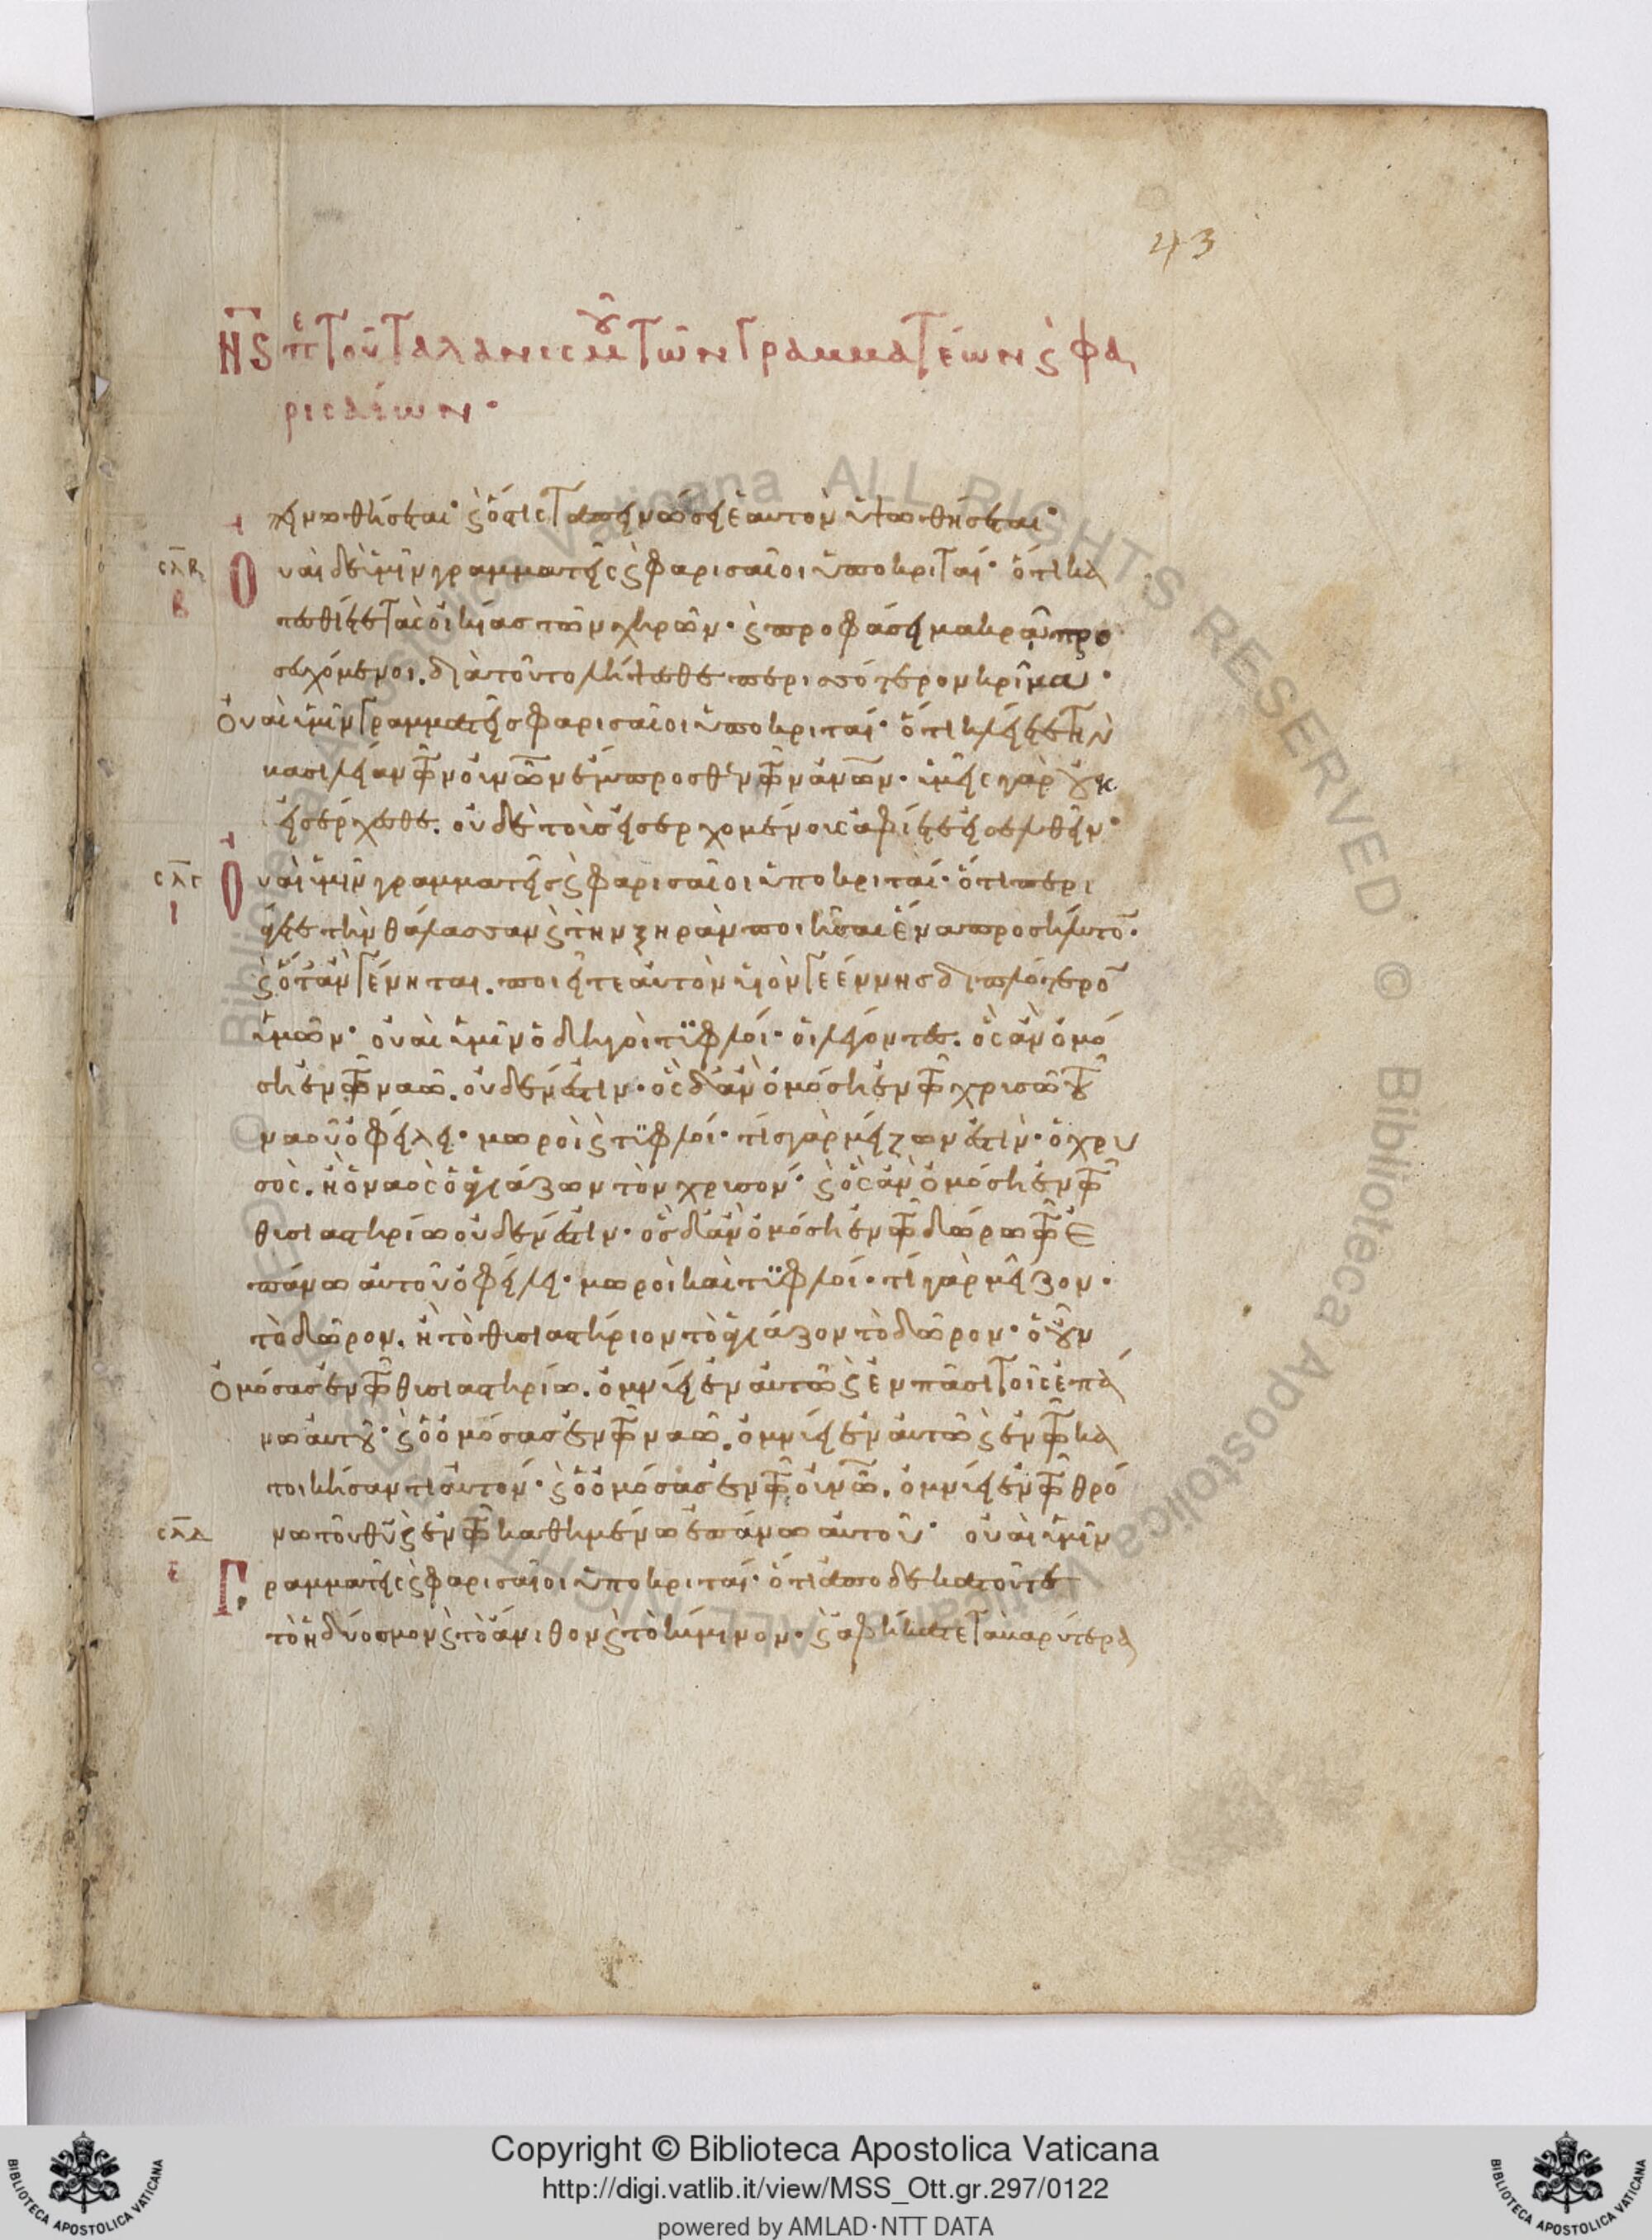 43
ΝϚ πε τοῦ ταλανισμοῦ τῶν γραμματέων ϛ φα
ρισαίων·
πεινωθήσεται· ϛ ὅστις ταπεινώσει ἑαυτὸν ὑψωθήσεται·
σλβ
β
Οὐαὶ δὲ ὑμῖν γραμματεῖς ϛ φαρισαῖοι ὑποκριταί· ὅτι κα
τεσθίετε τὰς οἰκίας τῶν χηρῶν· ϛ προφάσει μακρᾶ προ
σευχόμενοι. διὰ τοῦτο λήψεσθε περισσότερον κρῖμα·
Οὐαὶ ὑμῖν γραμματεῖς φαρισαῖοι ὑποκριταί· ὅτι κλείετε τὴν
βασιλείαν τῶν οὐνῶν ἔμπροσθεν τῶν ἀνων· ὑμεῖς γὰρ οὐκ
εἰσέρχεσθε. οὐδὲ τοὺς εἰσερχομένους ἀφίετε εἰσελθεῖν·
σλγ
ι
Οὐαὶ ὑμῖν γραμματεῖς ϛ φαρισαῖοι ὑποκριταί· ὅτι περι
άγετε τὴν θάλασσαν ϛ τὴν ξηρὰν ποιῆσαι ἕνα προσήλυτο̅·
ϛ ὅταν γένηται. ποιεῖτε αὐτὸν υἱὸν γεέννης διπλότερο̅
ὑμῶν· οὐαὶ ὑμῖν ὁδηγοὶ τϋφλοί· οἱ λέγοντες. ὃς ἂν ὀμό
ση ἐν τῶ ναῶ. οὐδέν ἐστιν· ὃς δ' ἂν ὀμόση ἐν τῶ χρυσῶ τοῦ
ναοῦ ὀφείλει· μωροὶ ϛ τϋφλοί· τίς γὰρ μείζων ἐστίν· ὁ χρυ
σὸς. ἢ ὁ ναὸς ὁ ἁγιάζων τὸν χρυσόν· ϛ ὃς ἂν ὀμόση ἐν τῶ
θυσιαστηρίω οὐδέν ἐστιν· ὃς δ' ἂν ὀμόση ἐν τῶ δώρω τῶ ἐ
πάνω αὐτοῦ ὀφείλει· μωροὶ καὶ τϋφλοί· τί γὰρ μεῖζον·
τὸ δῶρον. ἢ τὸ θυσιαστήριον τὸ ἁγιάζον τὸ δῶρον· ὁ οὖν
Ὀμόσας ἐν τῶ θυσιαστηρίω. ὀμνύει ἐν αὐτῶ ϛ ἐν πᾶσι τοῖς ἐπά
νω αὐτοῦ· ϛ ὁ ὀμόσας ἐν τῶ ναῶ. ὀμνύει ἐν αὐτῶ ϛ ἐν τῶ κα
τοικήσαντι αὐτόν· ϛ ὁ ὀμόσας ἐν τῶ οὐνῶ. ὀμνύει ἐν τῶ θρό
σλδ
νω τοῦ θυ ϛ ἐν τῶ καθημένω ἐπάνω αὐτοῦ· οὐαὶ ὑμῖν
ε
Γραμματεῖς ϛ φαρισαῖοι ὑποκριταί· ὅτι ἀποδεκατοῦτε
τὸ ἡδύοσμον ϛ τὸ ἄνιθον ϛ τὸ κύμινον· ϛ ἀφήκατε τὰ βαρύτερα
Copyright © Biblioteca Apostolica Vaticana
http://digi.vatlib.it/view/MSS_Ott.gr.297/0122
powered by AMLAD·NTT DATA